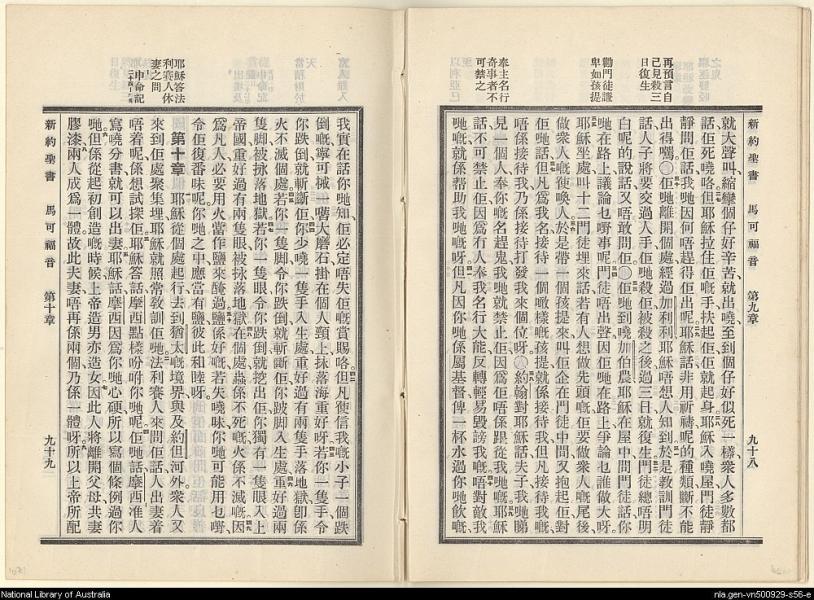 新約聖書 馬可福音 第九章 九十八
再預言自
己見殺三
日復生
勸門徒謙
卑如孩提
奉主名行
奇事者不
可禁之
就大聲叫縮攣個仔好辛苦就出嘵至到個仔好似死一樣衆人多數都
話佢死嘵咯但耶穌拉住佢嘅手扶起佢佢就起身耶穌入嘵屋門徒靜
靜問佢話我哋因何唔趕得佢出呢耶穌話非用祈禱呢的種類斷不能
出得嚟〇佢哋離開個處經過加利利耶穌唔想人知到於是教訓門徒
話人子將要交過人手佢哋殺佢被殺之後過三日就復生門徒總唔明
白呢的說話又唔敢問佢〇佢哋到嘵加伯農耶穌在屋中問門徒話你
哋在路上議論乜嘢事呢門徒唔出聲因佢哋在路上爭論乜誰做大呀
耶穌坐處叫十二門徒埋來話若有人想做先頭嘅佢要做衆人嘅尾後
做衆人嘅使喚人於是帶一個孩提來叫佢企在門徒中間又抱起佢對
佢哋話但凡爲我名接待一個噉樣嘅孩提就係接待我但凡接待我嘅
唔係接待我乃係接待打發我來個位呀〇約翰對耶穌話夫子我哋睇
見一個人奉你嘅名趕鬼我哋就禁止佢因爲佢唔係跟從我哋嘅耶穌
話不可禁止佢因爲有人奉我名行大能反轉輕易毀謗我嘅唔對敵我
哋嘅就係幫助我哋嘅呀但凡因你哋係屬基督俾一杯水過你哋飲嘅
我實在話你哋知佢必定唔失佢嘅賞賜咯但凡使信我嘅小子一個跌
倒嘅寧可械一嚿大磨石掛在個人頸上抹落海重好呀若你一隻手令
你跌倒就斬斷佢你少嘵一隻手入生處重好過有兩隻手落地獄卽係
火不滅個處若你一隻脚令你跌倒就斬斷佢你跛脚入生處重好過兩
隻脚被抹落地獄若你一隻眼令你跌倒就挖出佢你獨有一隻眼入上
帝國重好過有兩隻眼被抹落地獄在個處蟲係不死嘅火係不滅嘅因
爲凡人必要用火當作鹽來醃過鹽係好嘅若失嘵味你哋可能用乜嘢
令佢復番味呢你哋之中應當有鹽彼此和睦呀
第十章 耶穌從個處起行去到猶太嘅境界與及約但河外衆人又
來到佢處聚集埋耶穌就照常敎訓佢哋法利賽人來問佢話人出妻着
唔着呢係想試探佢耶穌答話摩西點樣吩咐你哋呢佢哋話摩西准人
寫嘵分書就可以出妻耶穌話摩西因爲你哋心硬所以寫個條例過你
哋但係從起初創造嘅時候上帝造男亦造女因此人將離開父母共妻
膠漆兩人成爲一體故此夫妻唔再係兩個乃係一體呀所以上帝所配
耶穌答法
利賽人休
妻之問
申命記
新約聖書 馬可福音 第十章 九十九
National Library of Australia
nla.gen-vn500929-s56-e